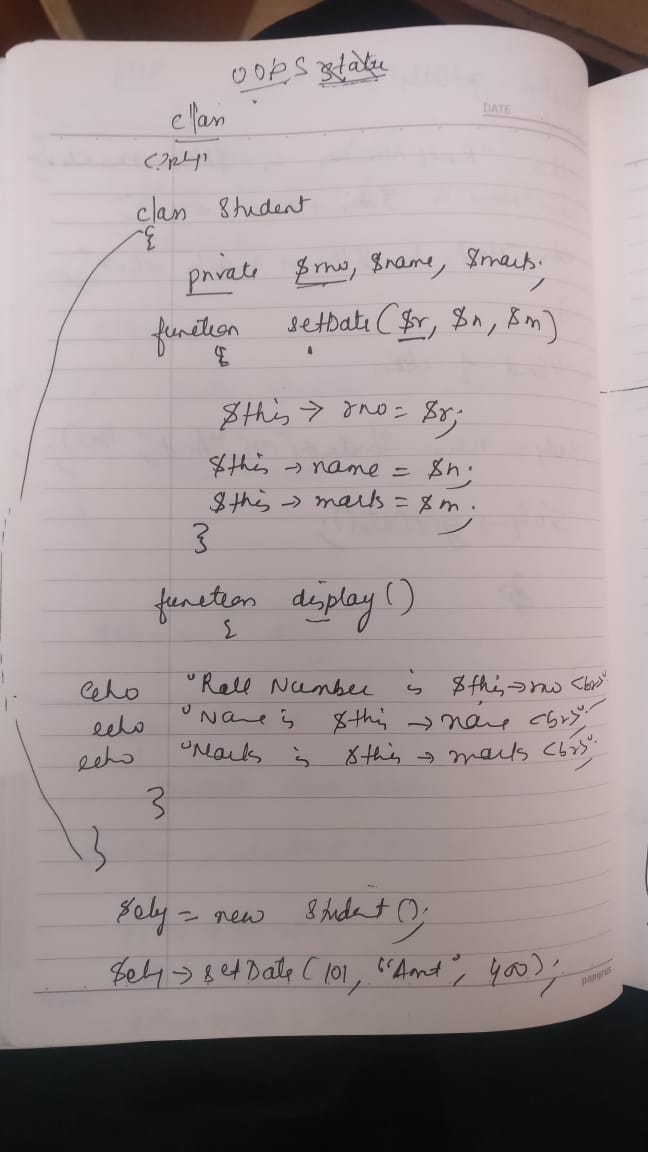 OOPS
DATE
class
<?php
class Student
{
private $rno, $name, $marks;
function setData($r, $n, $m)
{
$this → rno = $r;
$this → name = $n;
$this → marks = $m;
}
function display()
{
echo "Roll Number is $this→rno <br>";
echo "Name is $this → name <br>";
echo "Marks is $this → marks <br>";
}
}
$obj = new Student();
$obj → setData(101, "Amit", 400);
papyrus